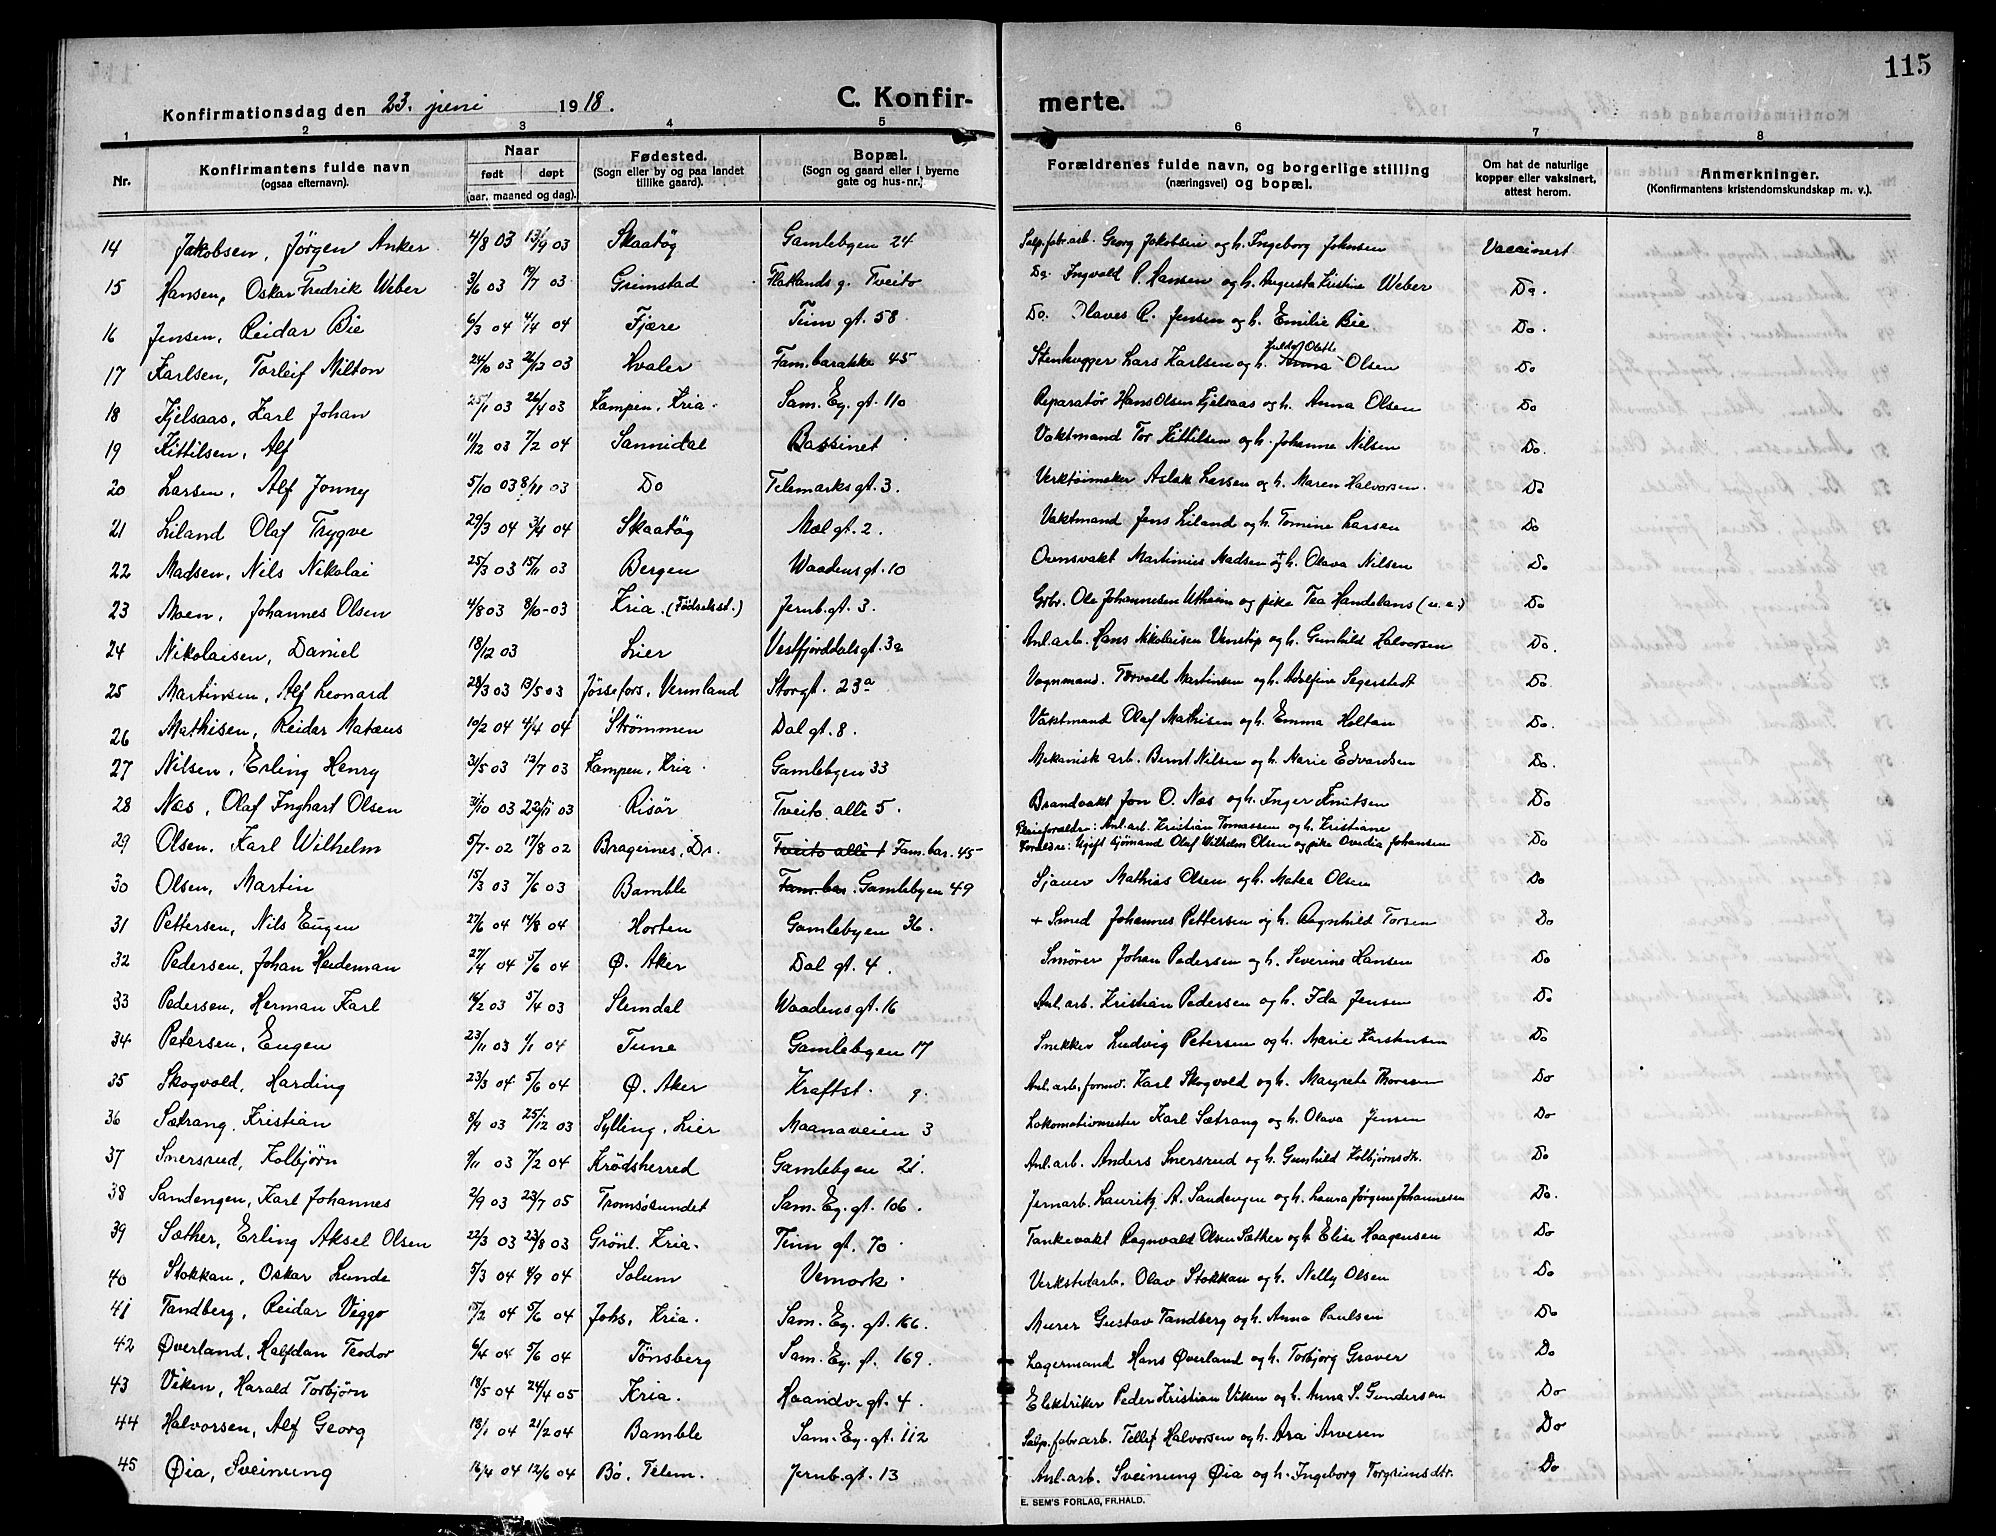 115
Konfirmationsdag den 23. juni 1918. C. Konfir- merte.
1 2 3 4 5 6 7 8
Nr. Konfirmantens fulde navn (ogsaa efternavn). Naar født døpt (aar, maaned og dag). Fødested. (Sogn eller by og paa landet tillike gaard). Bopæl. (Sogn og gaard eller i byerne gate og hus-nr.) Forældrenes fulde navn, og borgerlige stilling (næringsvei) og bopæl. Om hat de naturlige kopper eller vaksinert, attest herom. Anmerkninger. (Konfirmantens kristendomskundskap m. v.).
14 Jakobsen, Jørgen Anker 4/8 03 13/9 03 Skaatøy Gamlebyen 24 Salp.fabr.arb. Georg Jakobsen og h. Ingeborg Johnsen Vaccinert
15 Hansen, Oskar Fredrik Weber 3/6 03 19/7 03 Grimstad Flatlands g. Tveito Do. Ingvald P. Hansen og h. Augusta Kristine Weber Do.
16 Jensen, Reidar Bie 6/3 04 4/4 04 Fjære Tinn gt. 58 Do. Olaves R. Jensen og h. Emilie Bie. Do.
17 Karlsen, Torleif Milton 24/10 03 26/12 03 Hvaler Fam.barakke 45 Stenhugger Lars Karlsen og h. Anna Olsen Do
18 Kjelsaas, Karl Johan 25/1 03 26/4 03 Kampen, Kria. Sam. Ey. gt. 110 Reparatør Hans Olsen Kjelsaas og h. Anna Olsen Do
19 Kittilsen, Alf 4/12 03 7/2 04 Sannidal Bassinet Vaktmand Tor Kittilsen og h. Johanne Nilsen Do.
20 Larsen, Alf Jonny 5/10 03 8/11 03 Do Telemarks gt. 3. Verktøimaker Aslak Larsen og h. Maren Halvorsen. Do
21 Liland Olaf Trygve 29/3 04 3/4 04 Skaatøy Mæl gt. 2. Vaktmand Jens Liland og h. Tomine Larsen Do
22 Madsen, Nils Nikolai 25/3 03 15/11 03 Bergen Waadens gt. 10 Ovnsvakt Martinius Madsen og + h. Olava Nilsen Do
23 Moen, Johannes Olsen 4/8 03 8/10-03 Kria. (Fødselsst.) Jernb. gt. 3. Grbr. Ole Johannesen Utheim og pike Tea Handelans (u. e.) Do
24 Nikolaisen, Daniel 18/12 03 Lier Vestfjorddalsgt. 32 Anl. arb. Hans Nikolaisen Venstøp og h. Gunhild Halvorsen Do.
25 Martinsen, Alf Leonard 28/3 03 13/5 03 Jössefors, Vermland Storgt. 23a Vognmand. Torvald Martinsen og h. Adolfine Segerstedt Do.
26 Mathisen, Reidar Matæus 10/2 04 4/4 04 Strømmen Dal gt. 8. Vaktmand Olaf Mathisen og h. Emma Holtan Do.
27 Nilsen, Erling Henry 31/5 03 12/7 03 Kampen, Kria. Gamlebyen 33 Mekanisk arb. Bernt Nilsen og h. Marie Edvardsen Do.
28 Næs, Olaf Inghart Olsen 31/10 03 22/11 03 Risør Tveito allé 5. Brandvakt Jon O. Næs og h. Inger Knutsen Do
29 Olsen, Karl Wilhelm 5/7-02 17/8 02 Bragernes, Dr. Tveito allé 1 Fam. bar. 45 Pleieforældre: Anl. arb. Kristian Tomassen og h. Kristiane Forældre: Ugift sjømand Olaf Wilhelm Olsen og pike Ovedia Johansen Do
30 Olsen, Martin 15/3 03 7/6 03 Bamble Fam. bar. Gamlebyen 49 Sjauer Mathias Olsen og h. Matea Olsen Do
31 Pettersen, Nils Eugen 27/6 04 14/8 04 Horten Gamlebyen 36. + Smed Johannes Pettersen og h. Ragnhild Torsen Do
32 Pedersen, Johan Heideman 27/4 04 5/6 04 Ø. Aker Dal gt. 4. Smører Johan Pedersen og h. Severine Hansen Do
33 Pedersen, Herman Karl 16/2 03 5/4 03 Slemdal Waadens gt. 16 Anl. arb. Kristian Pedersen og h. Ida Jensen Do
34 Petersen, Eugen 23/11 03 1/1 04 Tune Gamlebyen 17 Snekker Ludvig Petersen og h. Marie Karstensen Do
35 Skogvold, Harding 23/3 04 5/6 04 Ø. Aker Kraftst. 9. Anl. arb. formd. Karl Skogvold og h. Margrete Thoresen Do
36 Sætrang, Kristian 8/9 03 25/12 03 Sylling, Lier Maanaveien 3 Lokomotivmester Karl Sætrang og h. Olava Jensen Do
37 Snersrud, Kolbjørn 9/11 03 7/2 04 Krødsherred Gamlebyen 21. Anl. arb. Anders Snersrud og h. Gunhild Kolbjørnsdt. Do
38 Sandengen, Karl Johannes 2/9 03 23/7 05 Tromsøsundet Sam. Ey. gt. 106. Jernarb. Lauritz A. Sandengen og h. Laura Jørgine Johannesen Do.
39 Sæther, Erling Aksel Olsen 22/3 03 23/8 03 Grønl. Kria. Tinn gt. 70 Tankevakt Ragnvald Olsen Sæther og h. Elise Haagensen Do
40 Stokkan, Oskar Lunde 5/3 04 4/9 04 Solum Vemork. Verkstedarb. Olav Stokkan og h. Nelly Olsen Do
41 Tandberg, Reidar Viggo 15/2 04 5/6 04 Johs, Kria. Sam. Ey. gt. 166. Murer Gustav Tandberg og h. Anna Paulsen Do
42 Øverland, Halfdan Teodor 6/4 04 5/6 04 Tønsberg Sam. Ey. gt. 169. Lagermand Hans Øverland og h. Torbjørg Graver Do
43 Viken, Harald Torbjørn 18/5 04 24/4 05 Kria. Haandv. gt. 4. Elektriker Peder Kristian Viken og h. Anna S. Gundersen Do
44 Halvorsen, Alf Georg 18/1 04 21/2 04 Bamble Sam. Ey. gt. 112 Salp. fabr arb. Tellef Halvorsen og h. Asa Arvesen Do
45 Øia, Sveinung 16/4 04 12/6 04 Bø, Telem. Jernb. gt. 13 Anl. arb. Sveinung Øia og h. Ingeborg Torgrimsdtr. Do
E. SEM'S FORLAG, FR.HALD.